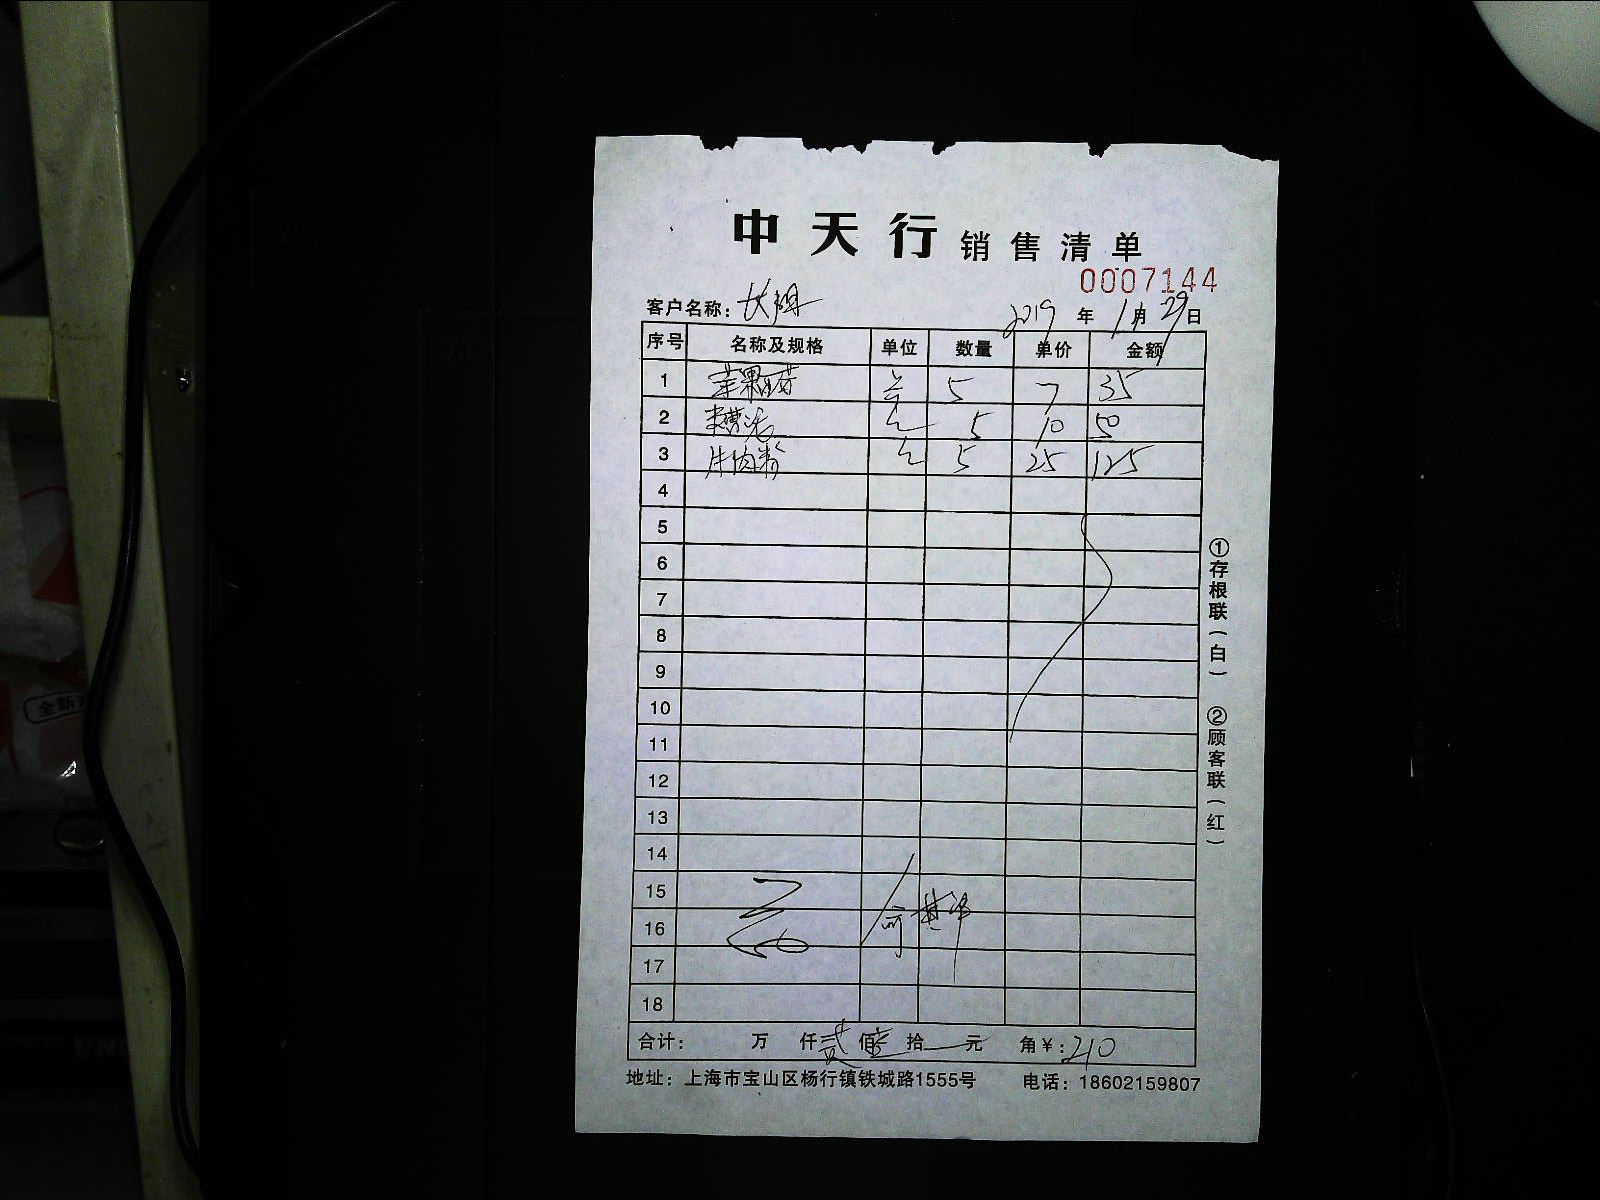 中天行 销售清单
0007144
客户名称： 2019 年 1 月 29 日
序号 名称及规格 单位 数量 单价 金额
1 5 7 35
2 5 10 50
3 牛肉粉 5 25 125
4
5
6
7
8
9
10
11
12
13
14
15
16
17
18
合计： 万 仟 贰 佰 壹 拾 元 角￥：210
地址：上海市宝山区杨行镇铁城路1555号 电话：18602159807
①存根联（白） ②顾客联（红）
全新